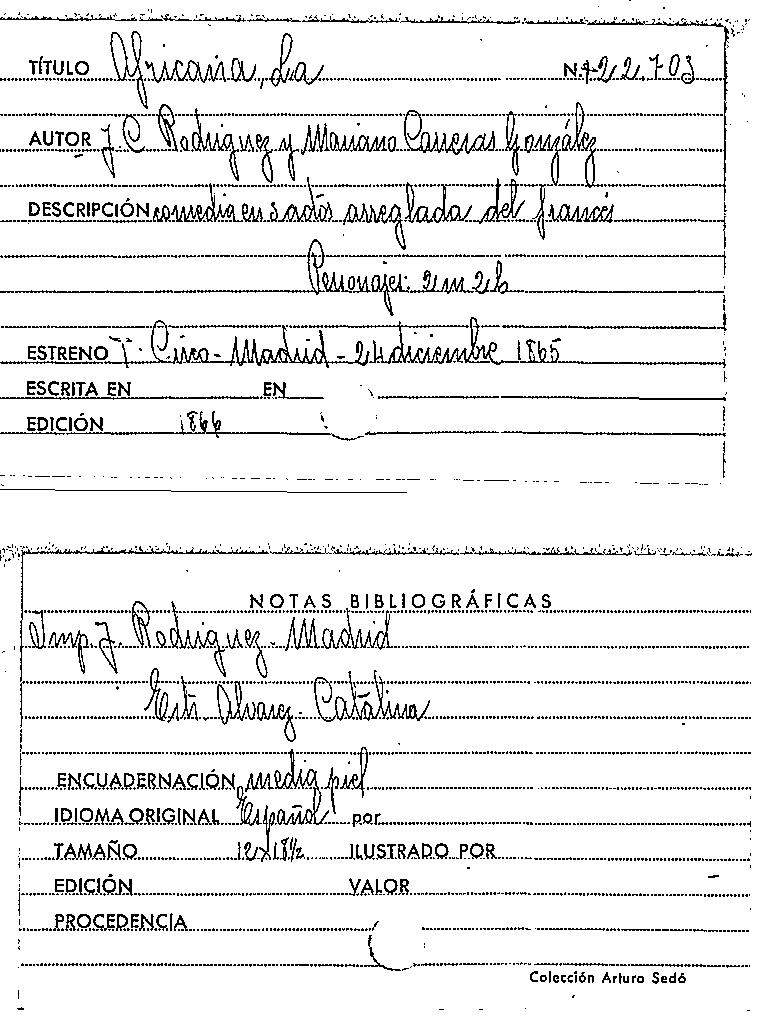 TÍTULO Africana, La N.º 22.703
AUTOR J. C. Rodriguez y Mariano Carreras González
DESCRIPCIÓN comedia en 3 actos arreglada del francés
Personajes: 2 m 2 h
ESTRENO T. Circo - Madrid - 24 diciembre 1865
ESCRITA EN EN
EDICIÓN 1866
NOTAS BIBLIOGRÁFICAS
Imp. J. Rodriguez - Madrid
Alvarez - Catalina
ENCUADERNACIÓN media piel
IDIOMA ORIGINAL Español por
TAMAÑO 12x18½ ILUSTRADO POR
EDICIÓN VALOR -
PROCEDENCIA
Colección Arturo Sedó